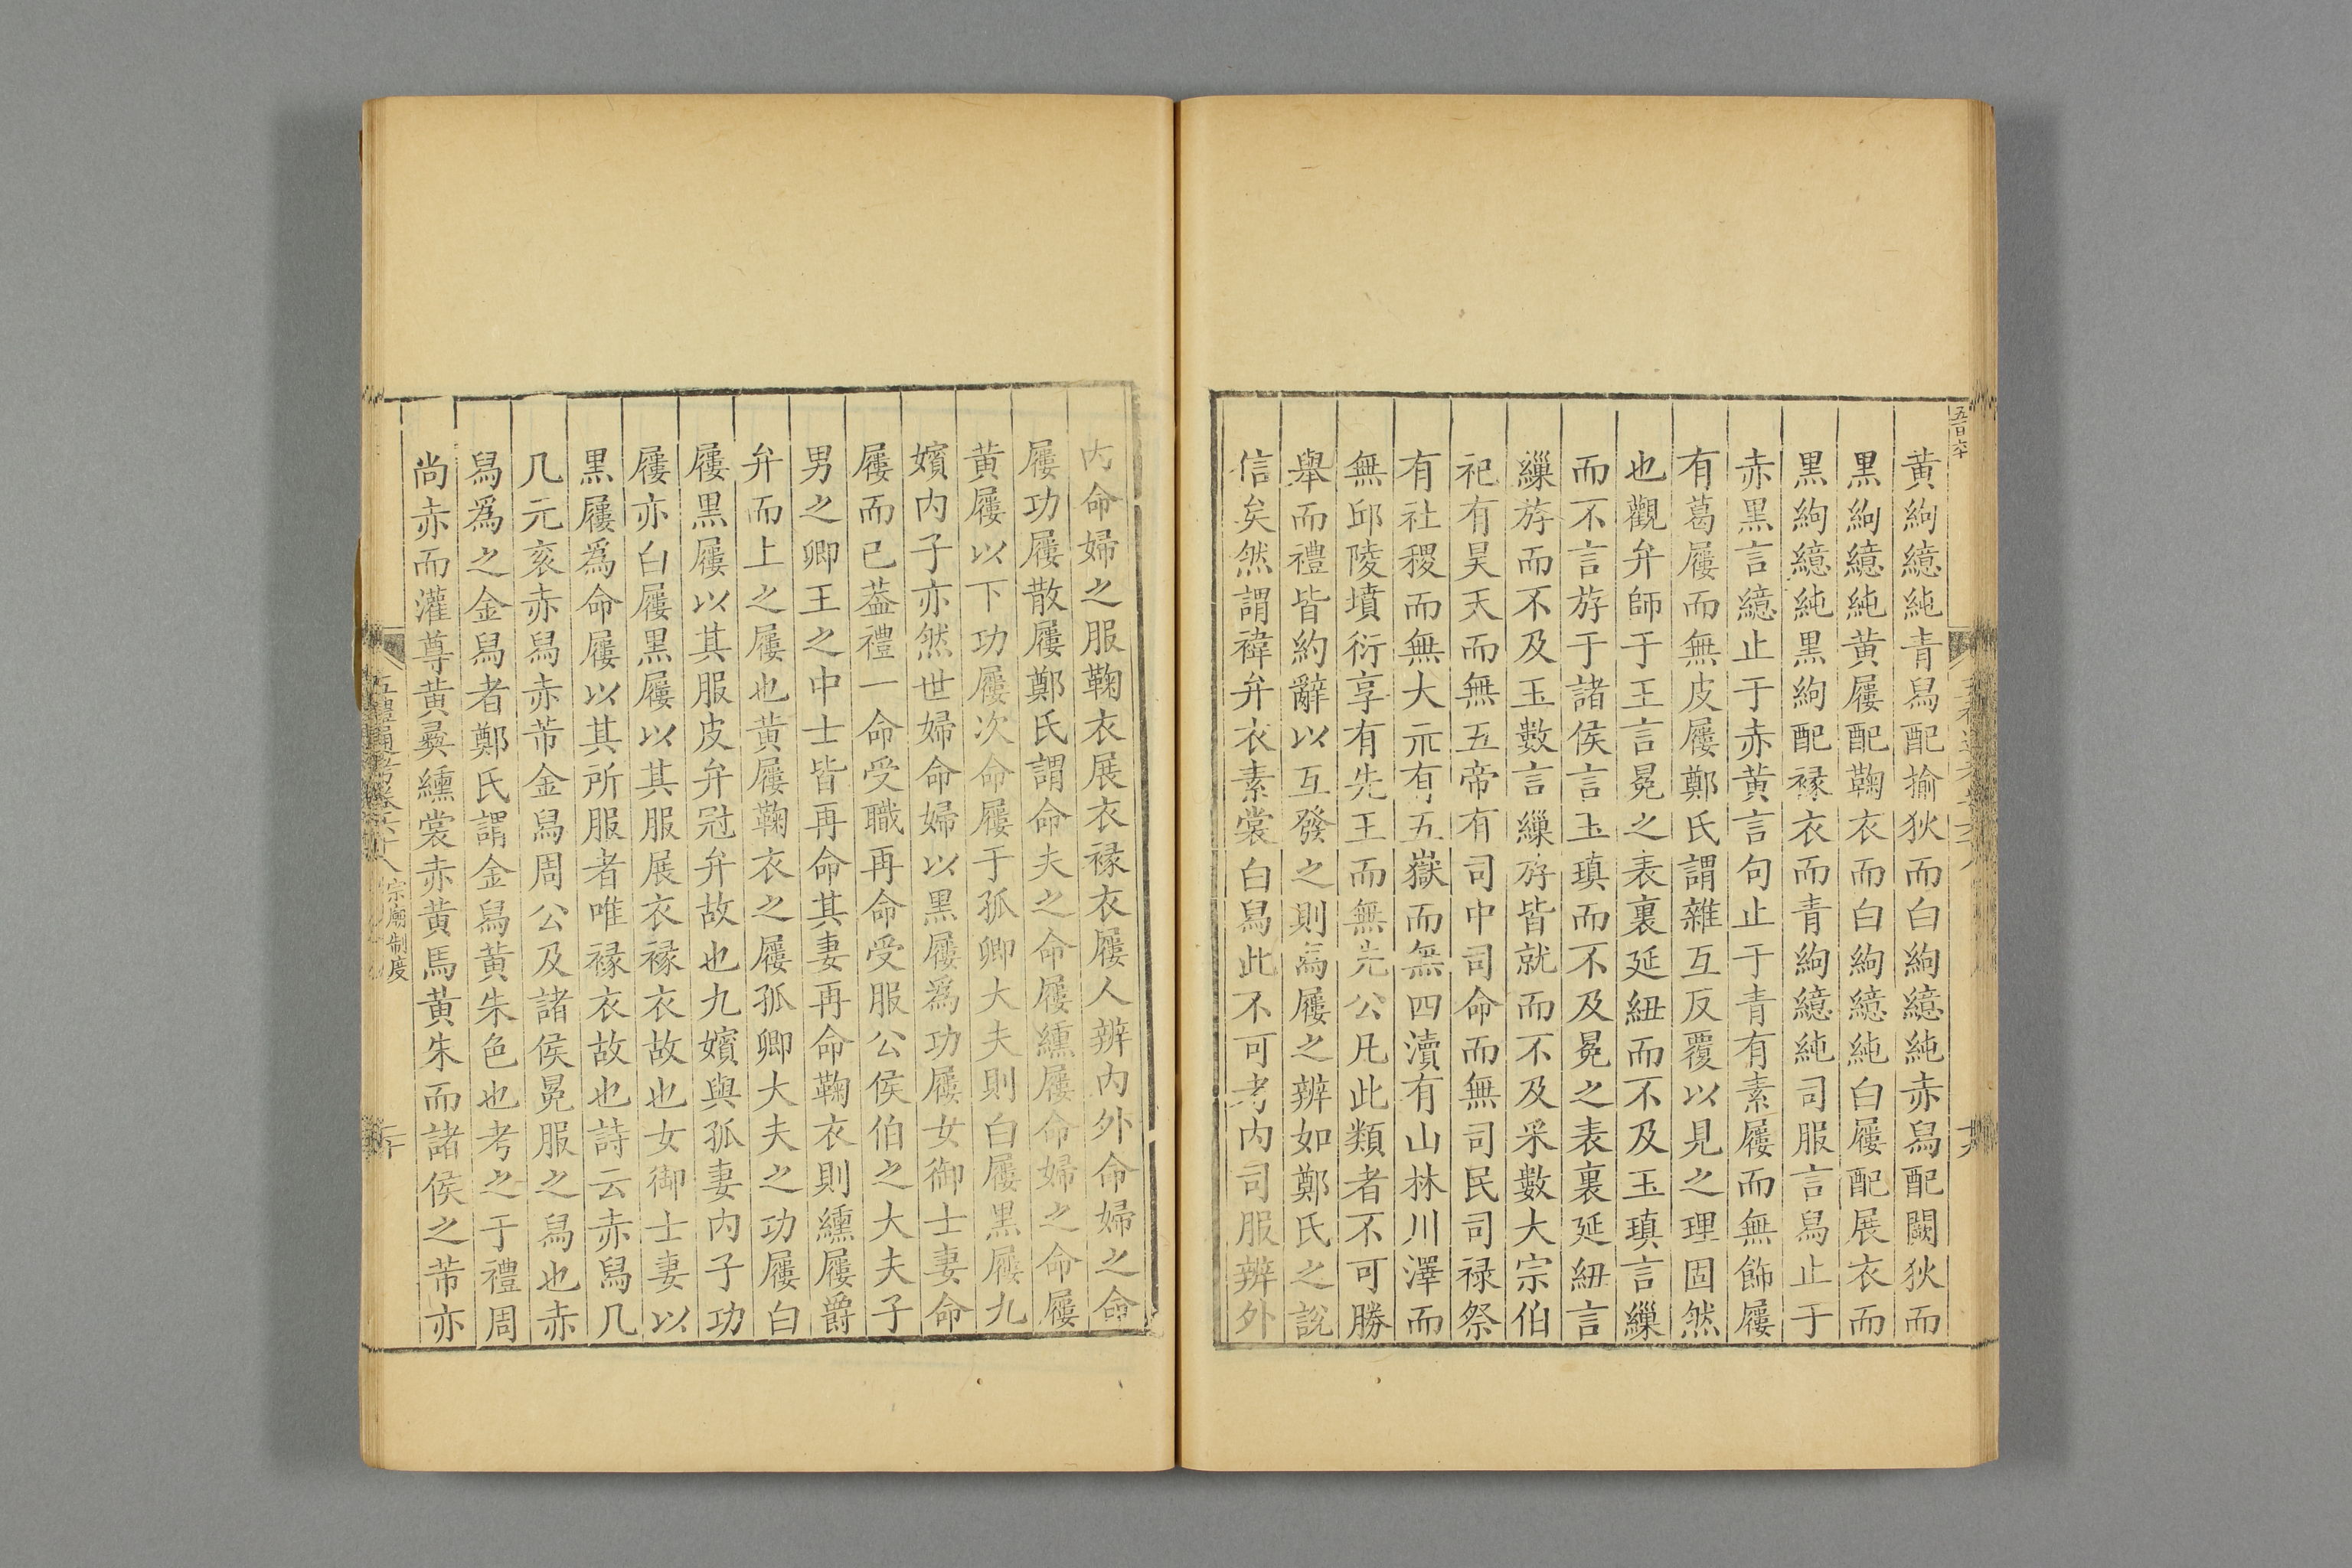 五百六十
黃絇繶純青舄配揄狄而白絇繶純赤舄配闕狄而
黑絇繶純黃屨配鞠衣而白絇繶純白屨配展衣而
黑絇繶純黑絇配褖衣而青絇繶純司服言舄止于
赤黑言繶止于赤黃言句止于青有素屨而無飾屨
有葛屨而無皮屨鄭氏謂雜互反覆以見之理固然
也觀弁師于王言冕之表裏延紐而不及玉瑱言繅
而不言斿于諸侯言玉瑱而不及冕之表裏延紐言
繅斿而不及玉數言繅斿皆就而不及采數大宗伯
祀有昊天而無五帝有司中司命而無司民司祿祭
有社稷而無大示有五嶽而無四瀆有山林川澤而
無邱陵墳衍享有先王而無先公凡此類者不可勝
舉而禮皆約辭以互發之則舄屨之辨如鄭氏之說
信矣然謂禕弁衣素裳白舄此不可考內司服辨外
內命婦之服鞠衣展衣褖衣屨人辨內外命婦之命
屨功屨散屨鄭氏謂命夫之命屨纁屨命婦之命屨
黃屨以下功屨次命屨于孤卿大夫則白屨黑屨九
嬪內子亦然世婦命婦以黑屨爲功屨女御士妻命
屨而已葢禮一命受職再命受服公侯伯之大夫子
男之卿王之中士皆再命其妻再命鞠衣則纁屨爵
弁而上之屨也黃屨鞠衣之屨孤卿大夫之功屨白
屨黑屨以其服皮弁冠弁故也九嬪與孤妻內子功
屨亦白屨黑屨以其服展衣褖衣故也女御士妻以
黑屨爲命屨以其所服者唯褖衣故也詩云赤舄几
几元衮赤舄赤芾金舄周公及諸侯冕服之舄也赤
舄爲之金舄者鄭氏謂金舄黃朱色也考之于禮周
尚赤而灌尊黃彞纁裳赤黃馬黃朱而諸侯之芾亦
五禮通考卷六十八 宗廟制度
二十